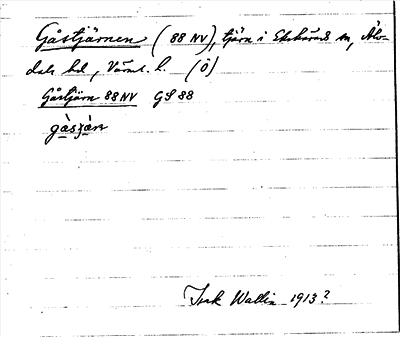 Gåstjärnen (88 NV), tjärn i Ekshärad sn, Älv-
dals hd, Värml. l. (Ö)
Gåstjärn 88 NV GS 88
Isak Wallin 1913?